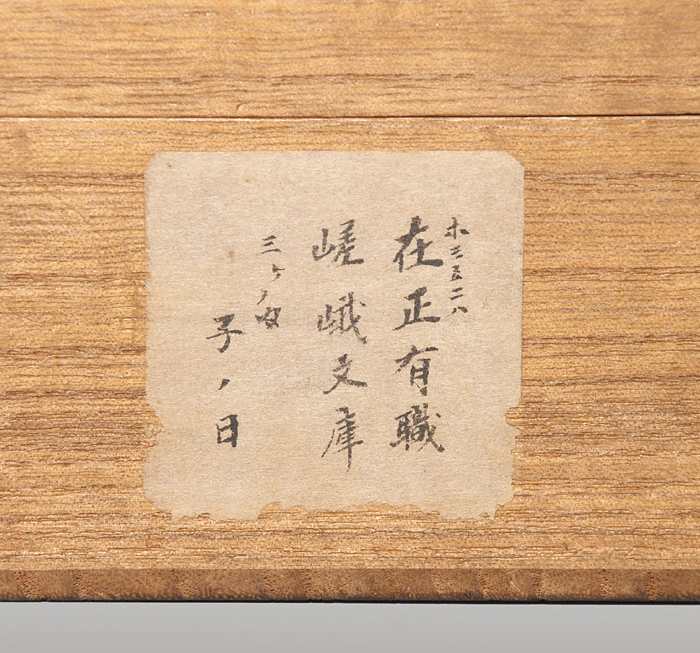 ホ三五二八
在正有職
嵯峨文庫
三ヶノ内
子ノ日